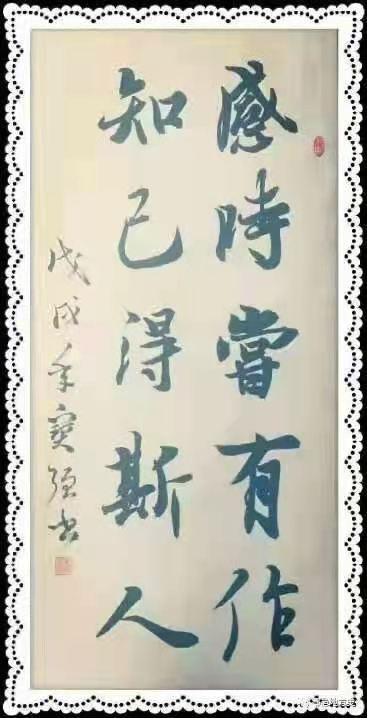 感時嘗有作
知己得斯人
戊戌年寶强书